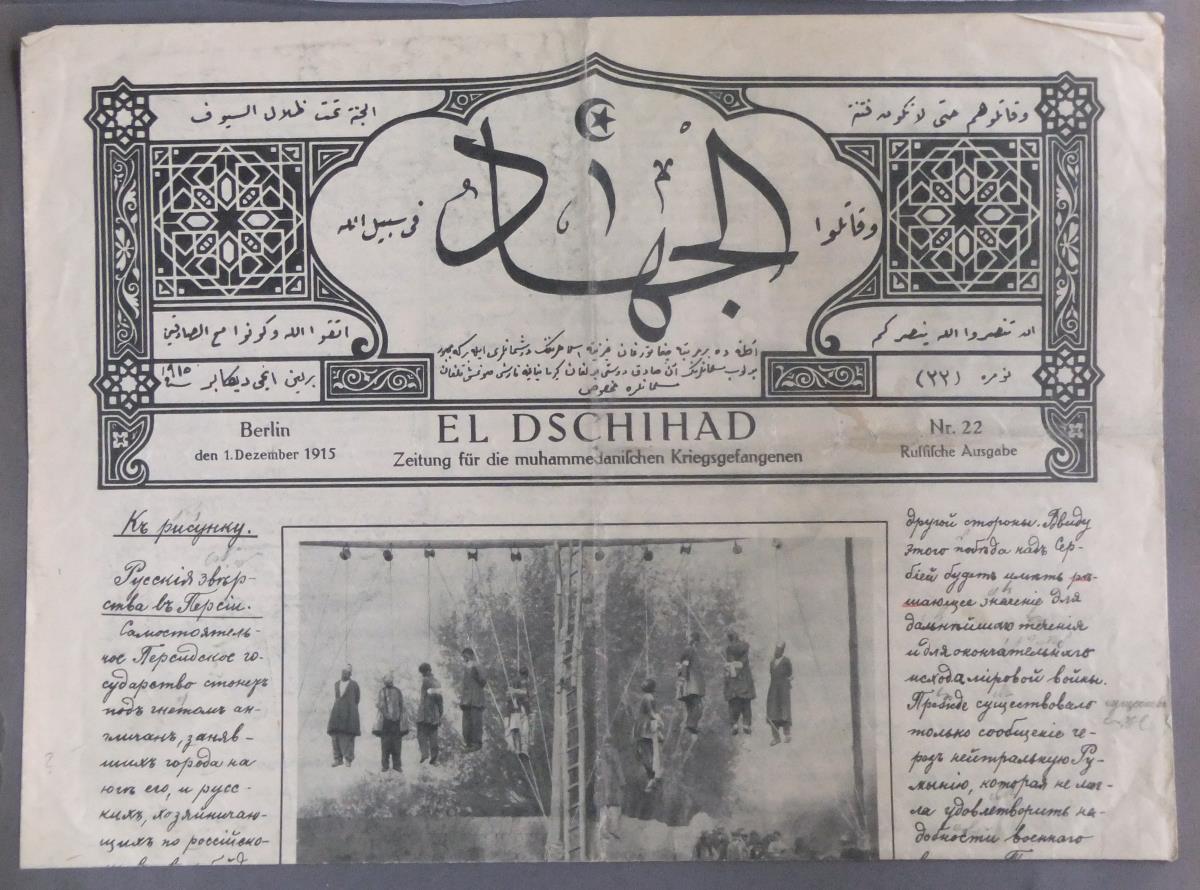 وقاتلوهم حتى لا تكون فتنة
الجنة تحت ظلال السيوف
الجهاد
وقاتلوا
فى سبيل الله
ان تنصروا الله ينصركم
اتقوا الله وكونوا مع الصادقين
نومره (٢٢)
برلين ايجى ديكابر ١٩١٥
Berlin
den 1. Dezember 1915
EL DSCHIHAD
Zeitung für die muhammedanischen Kriegsgefangenen
Nr. 22
Russische Ausgabe
Къ рисунку.
Русскія звѣр-
ства въ Персіи.
Самостоятель-
ное Персидское го-
сударство стонетъ
подъ гнетомъ ан-
гличан, заняв-
шихъ города на
югѣ его, и русс-
кихъ, хозяйничаю-
щихъ по россійско-
другой стороны. Ввиду
этого побѣда надъ Сер-
біей будетъ имѣть рѣ-
шающее значеніе для
дальнѣйшаго теченія
и для окончательнаго
исхода міровой войны.
Прежде существовало
только сообщеніе че-
резъ нейтральную Ру-
мынію, которая не мог-
ла удовлетворить на-
добности военнаго